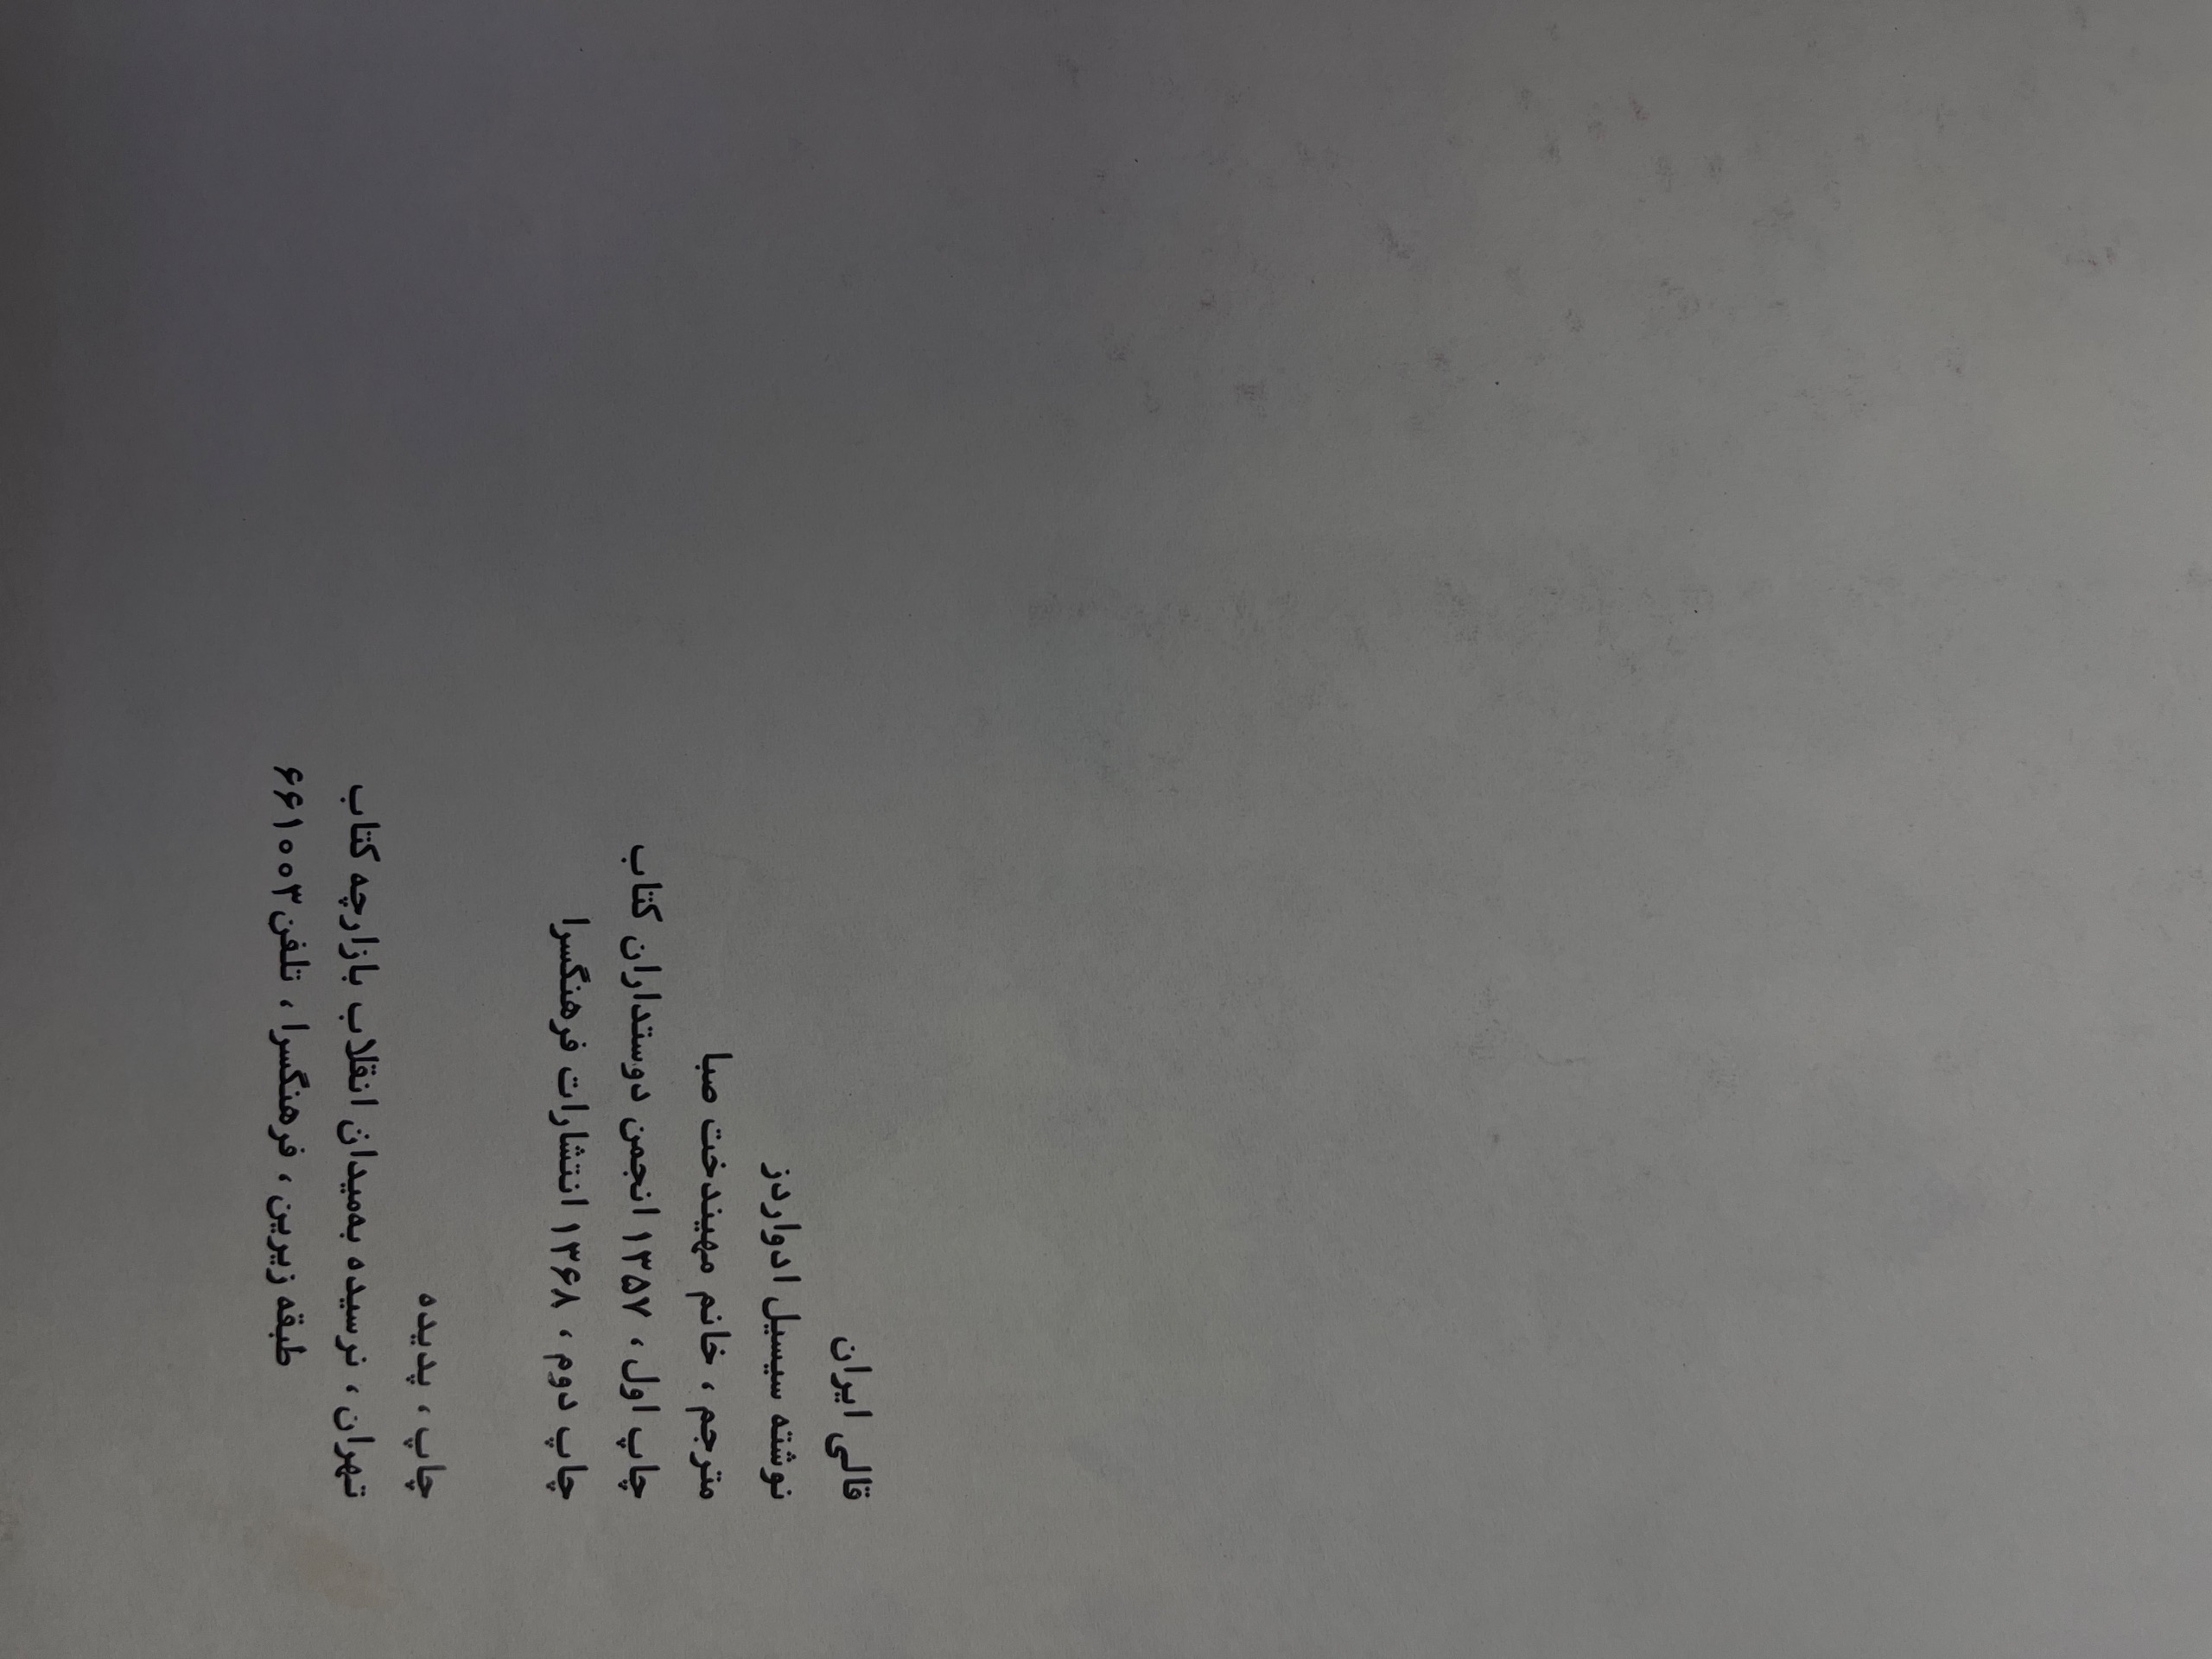 قالی ایران
نوشته سیسیل ادواردز
مترجم، خانم مهیندخت صبا
چاپ اول، ۱۳۵۷ انجمن دوستداران کتاب
چاپ دوم، ۱۳۶۸ انتشارات فرهنگسرا
چاپ، پدیده
تهران، نرسیده به‌میدان انقلاب بازارچه کتاب
طبقه زیرین، فرهنگسرا، تلفن ۶۶۱۰۰۳